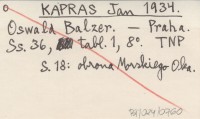 KAPRAS Jan 1934.
Oswald Balzer. — Praha.
Ss. 36, tabl. 1, 8°. TNP
S. 18: obrona Morskiego Oka.